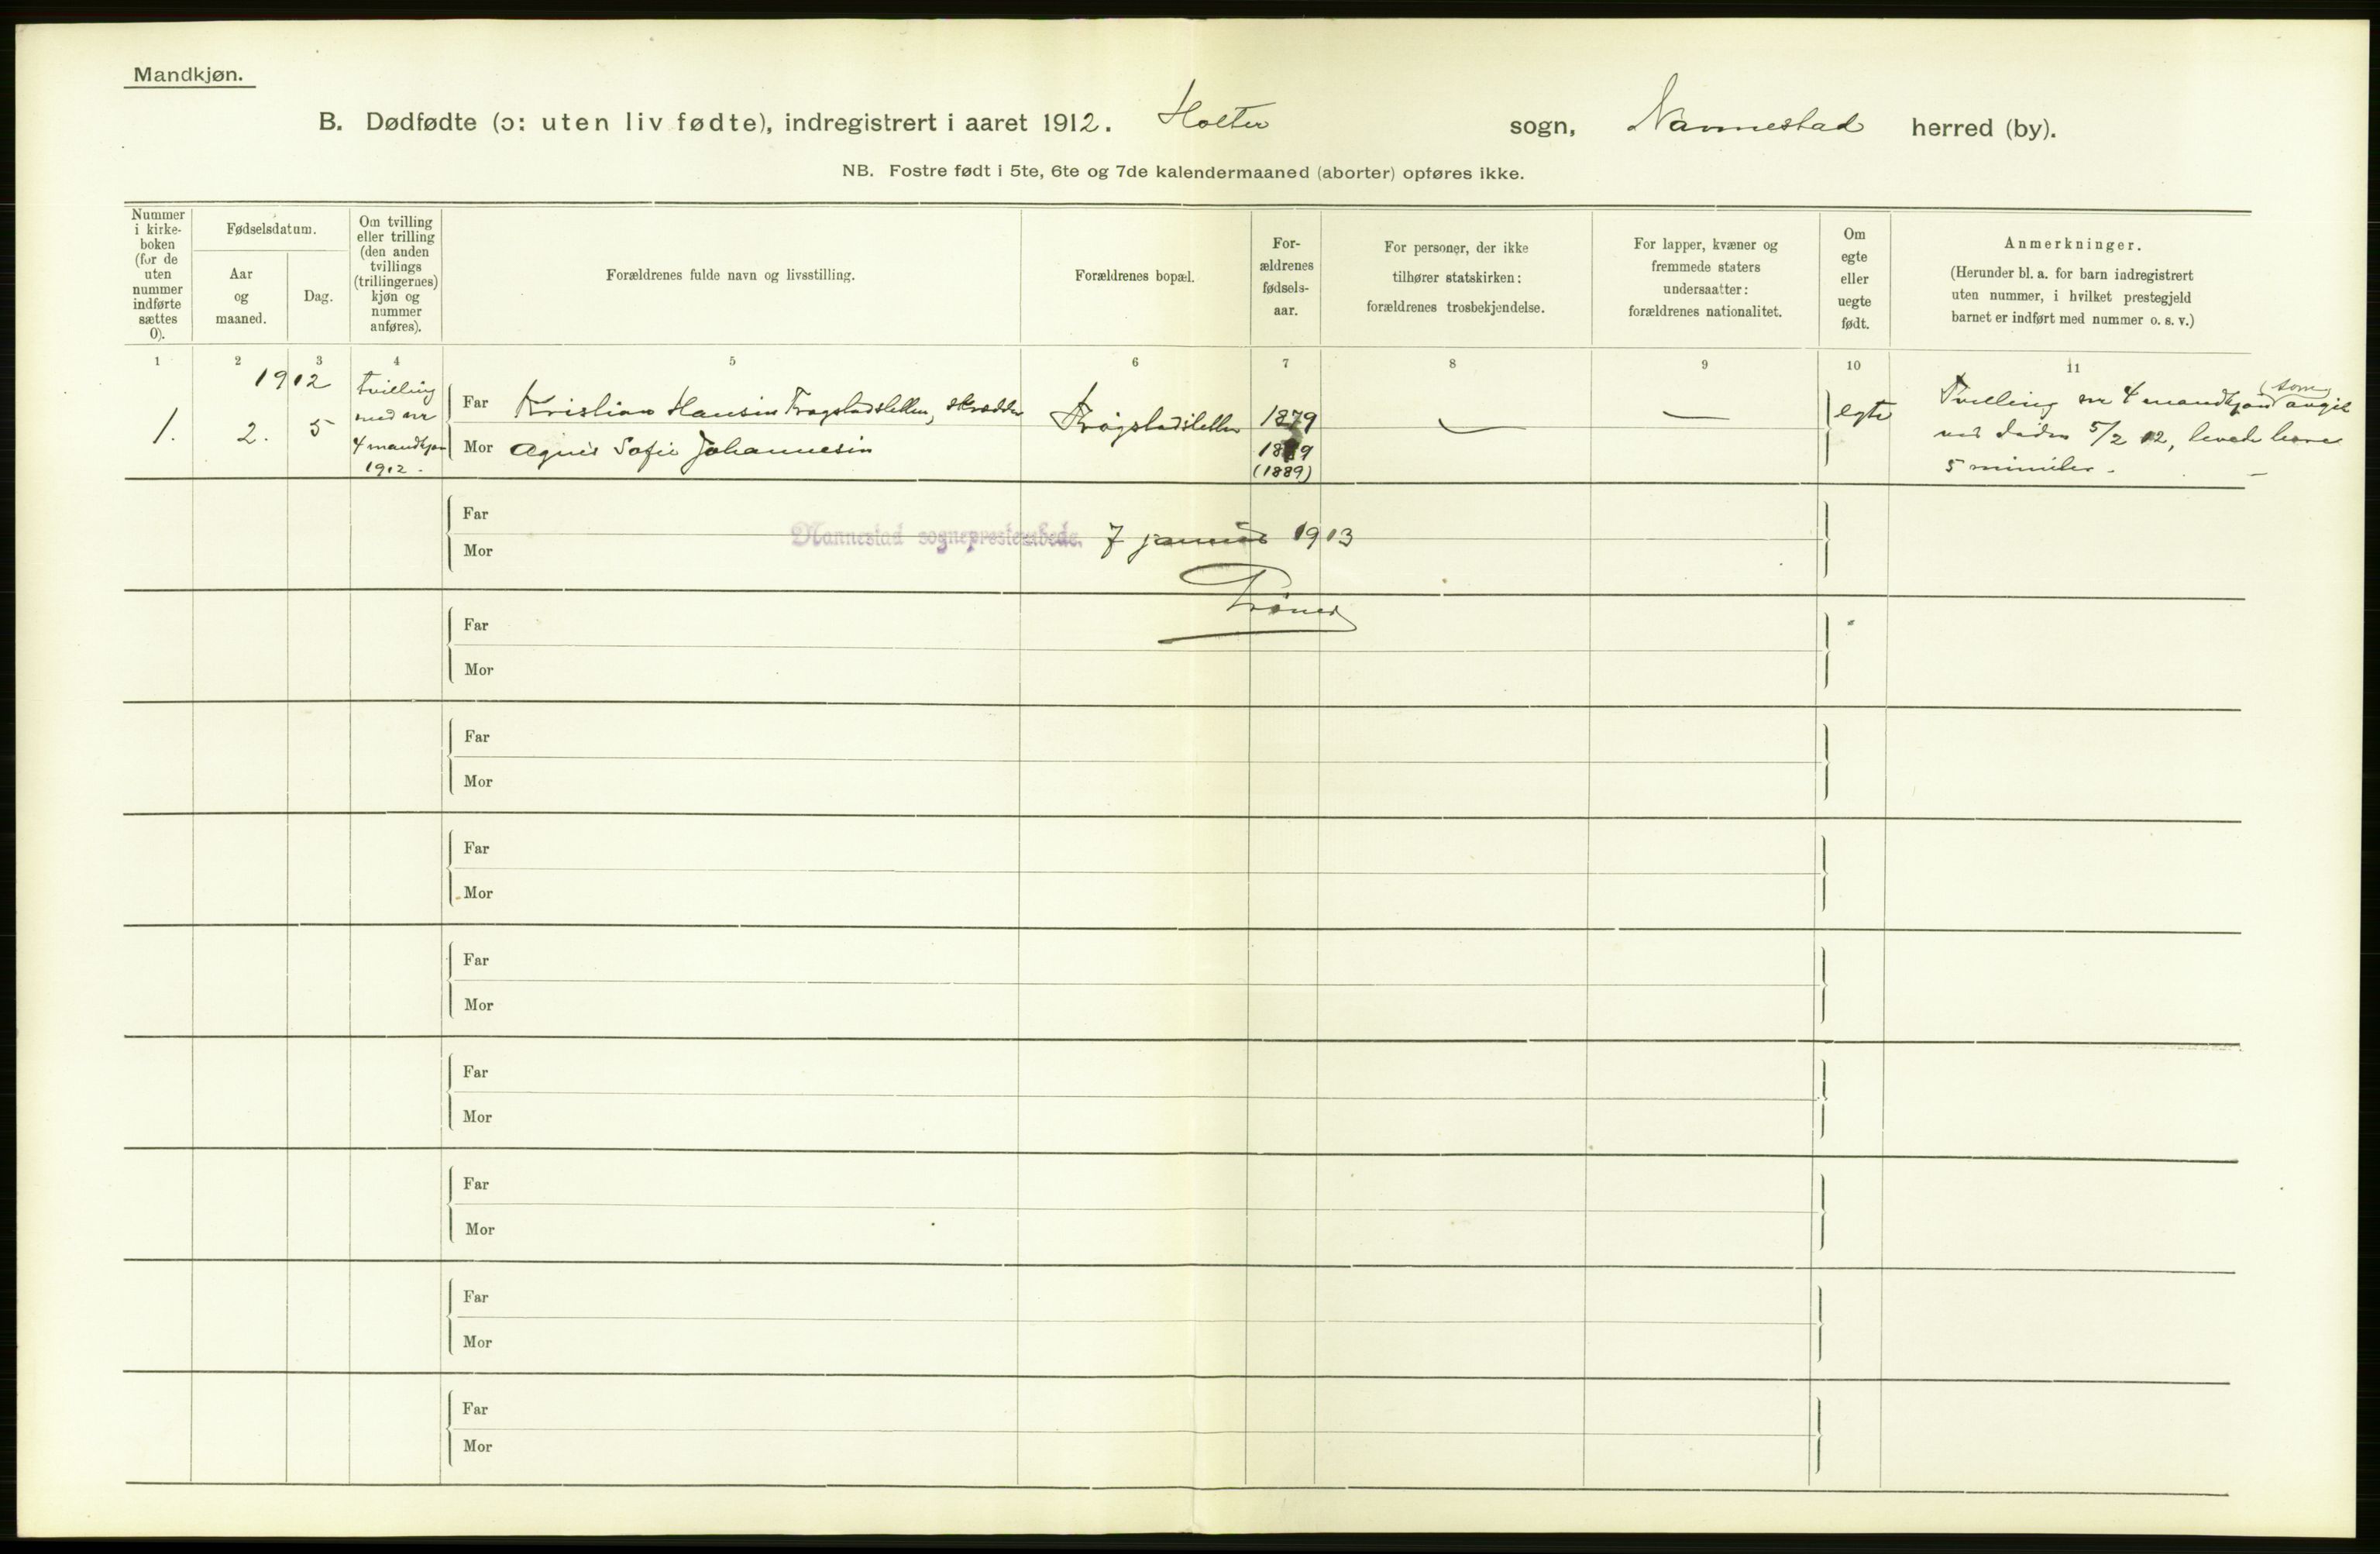 Mandkjøn.
B. Dødfødte (ɔ: uten liv fødte), indregistrert i aaret 1912. Holter sogn, Nannestad herred (by).
NB. Fostre født i 5te, 6te og 7de kalendermaaned (aborter) opføres ikke.
Nummer
i kirke-
boken
(for de
uten
nummer
indførte
sættes
0).
Fødselsdatum.
Aar
og
maaned.
Dag.
Om tvilling
eller trilling
(den anden
tvillings
(trillingernes)
kjøn og
nummer
anføres).
Forældrenes fulde navn og livsstilling.
Forældrenes bopæl.
For-
ældrenes
fødsels-
aar.
For personer, der ikke
tilhører statskirken:
forældrenes trosbekjendelse.
For lapper, kvæner og
fremmede staters
undersaatter:
forældrenes nationalitet.
Om
egte
eller
uegte
født.
Anmerkninger.
(Herunder bl. a. for barn indregistrert
uten nummer, i hvilket prestegjeld
barnet er indført med nummer o. s. v.)
1 2 3 4 5 6 7 8 9 10 11
1912
1. 2. 5
tvilling
med nr
4 mandkjøn
1912.
Far Kristian Hansen Trøgstadsletten, skrædder
Mor Agnes Sofie Johannesen
Trøgstadsletten
1879
1889
(1889)
egte
Tvilling nr 4 mandkjøn (som
angik
ved døden 5/2 12, levede
5 minuter.
Far
Mor
Nannestad sogneprestembede. 7 januar 1913
Far
Mor
Far
Mor
Far
Mor
Far
Mor
Far
Mor
Far
Mor
Far
Mor
Far
Mor